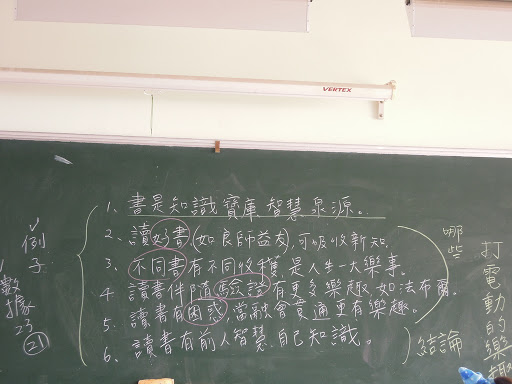 VERTEX
1. 書是知識寶庫智慧泉源。
2. 讀好書(如良師益友),可吸收新知.
3. 不同書有不同收穫.是人生一大樂事。
4 讀書伴隨驗證有更多樂趣.如法布爾。
5. 讀書有困惑,當融會貫通更有樂趣。
6. 讀書有前人智慧.自己知識。
例子
數據
23
21
哪些
結論
打電動的樂趣